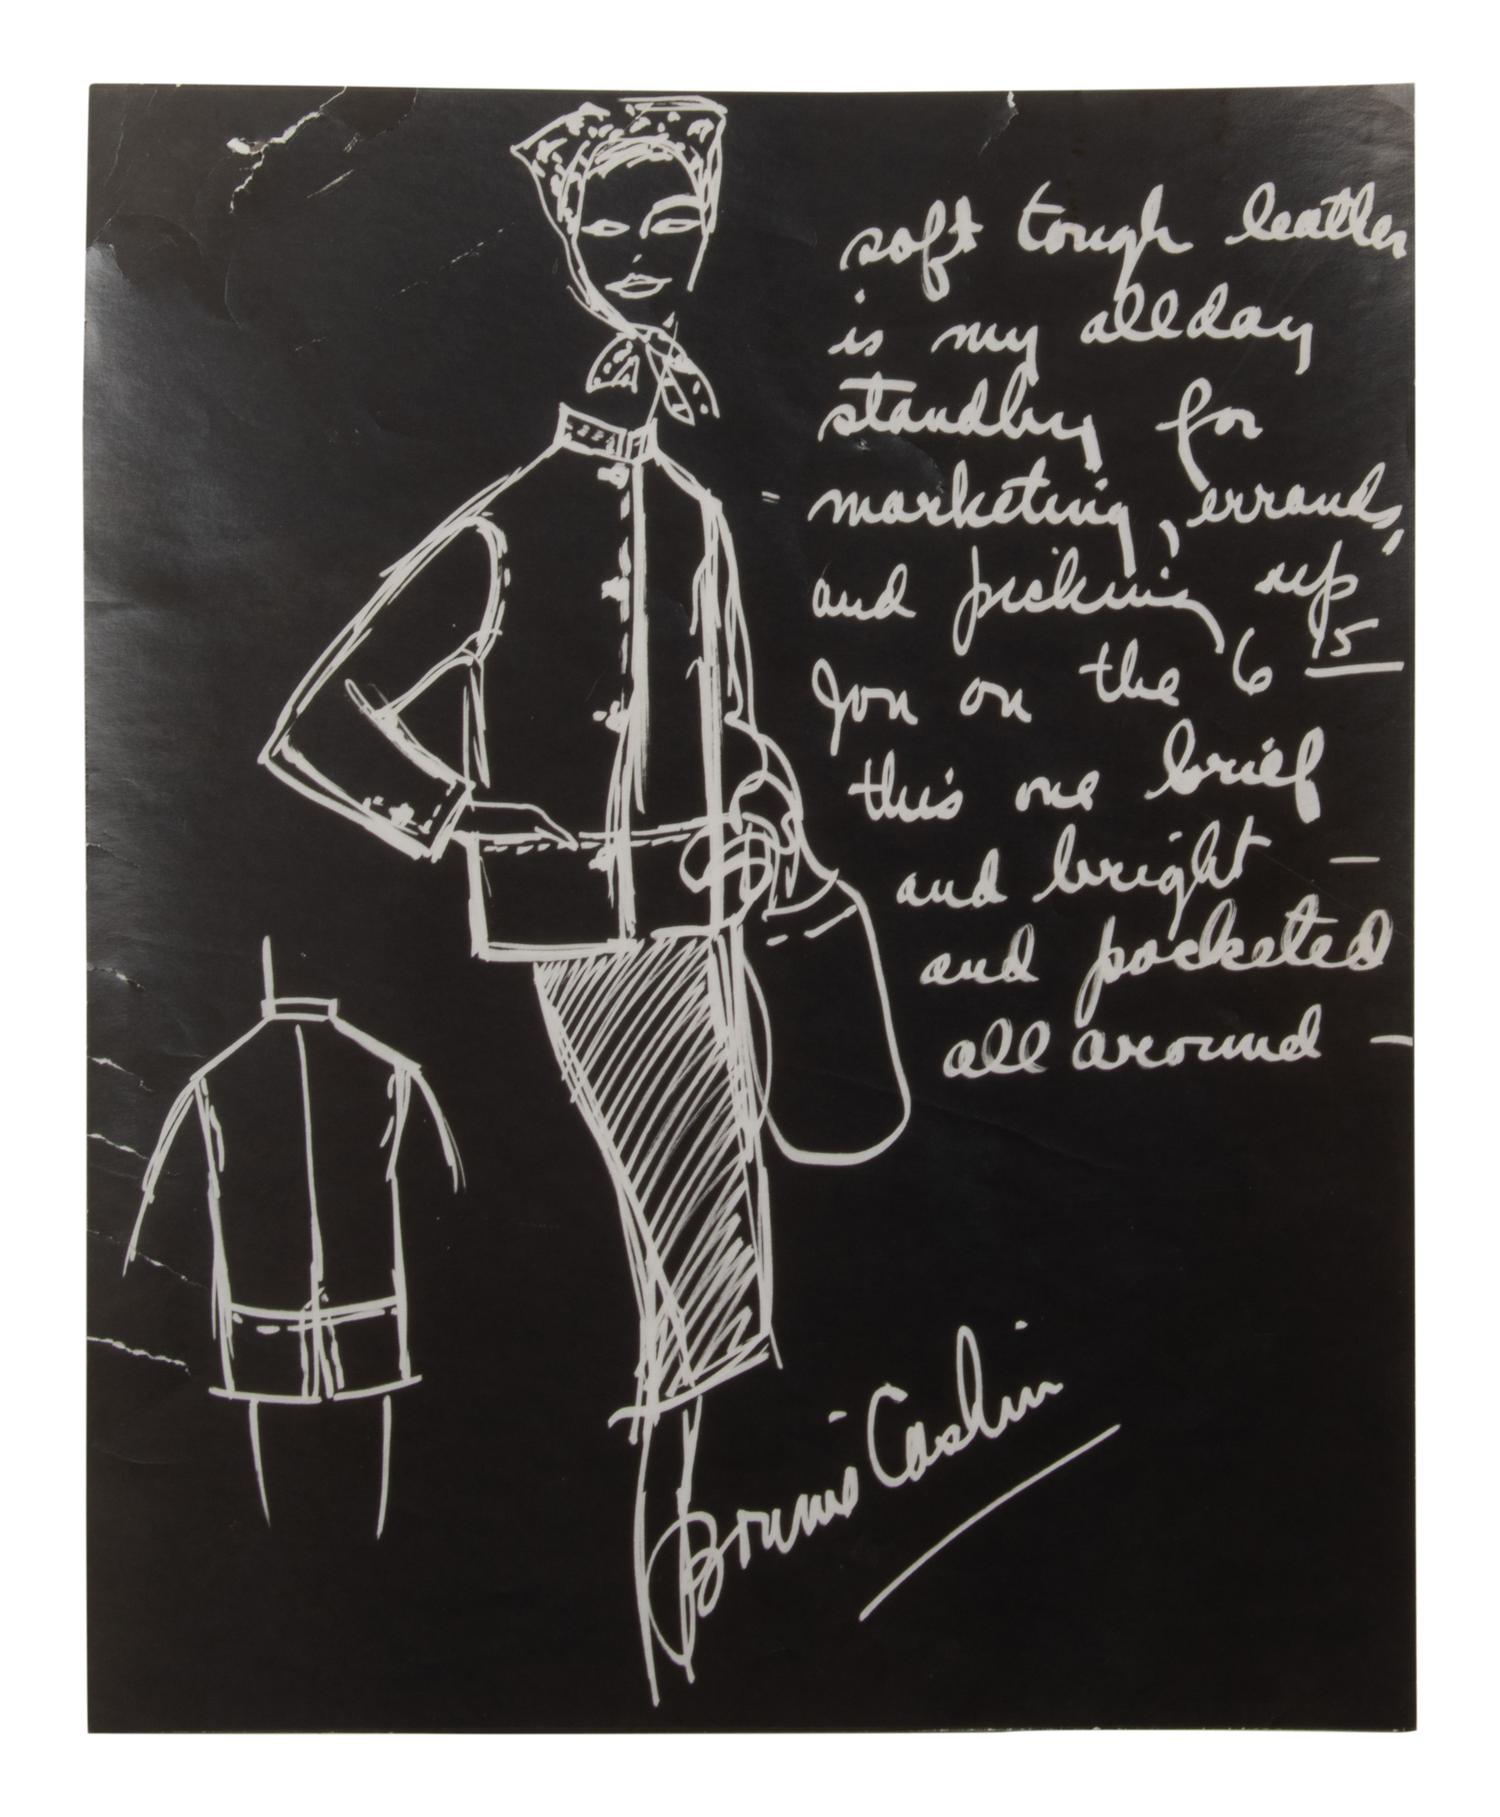 soft tough leather
is my allday
standby for
marketing, errands,
and picking up
Jon on the 6 15
this one brief
and bright —
and pocketed
all around —
Bonnie Cashin